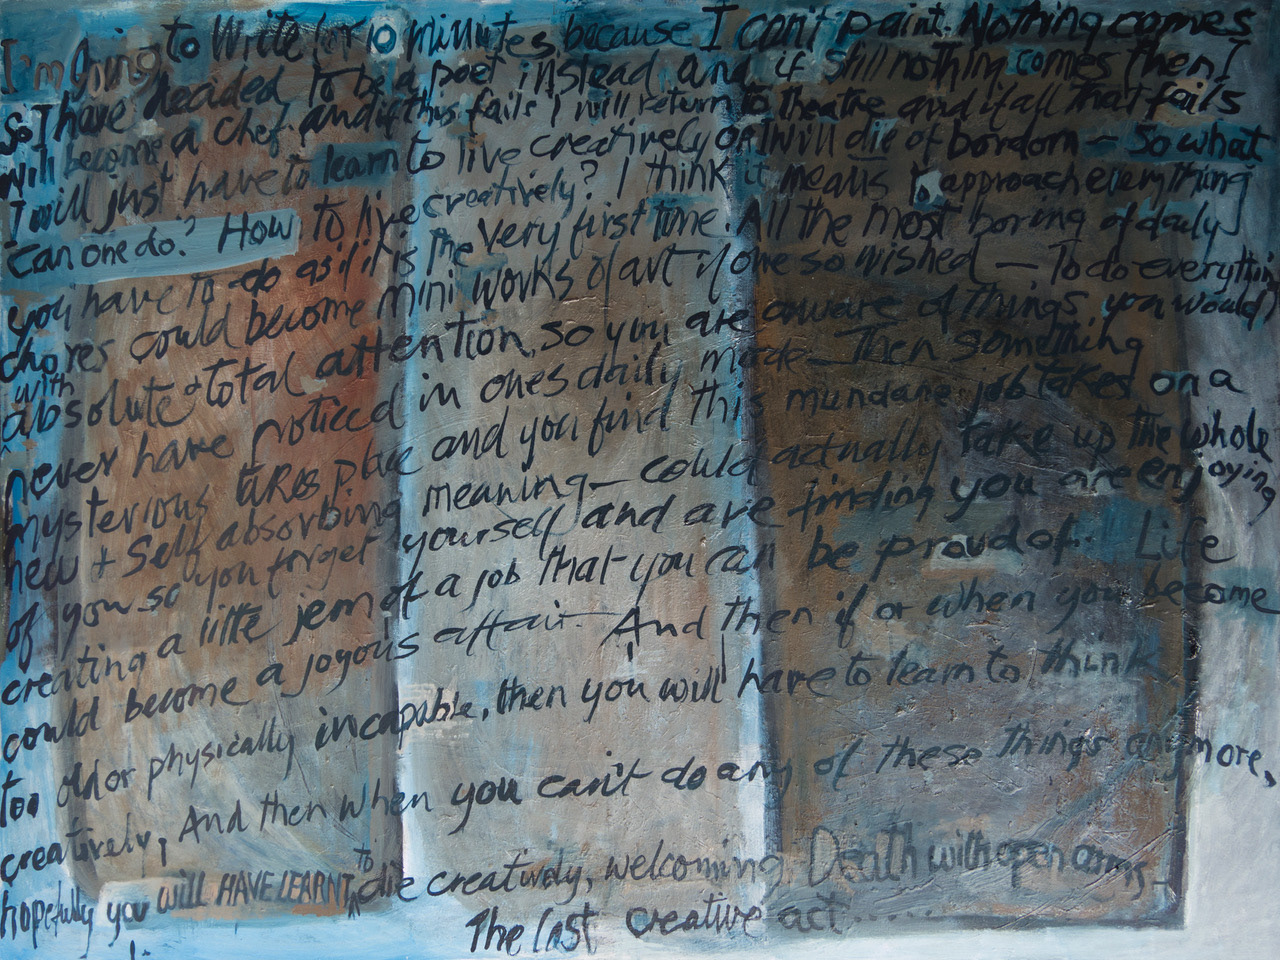 I'm going to write for 10 minutes because I can't paint. Nothing comes
So I have decided to be a poet instead and if still nothing comes then I
will become a chef. and if this fails I will return to theatre and if all that fails
I will just have to learn to live creatively or I will die of bordom – So what
can one do? How to live creatively? I think it means to approach everything
you have to do as if it is the very first time. All the most boring of daily
chores could become mini works of art if one so wished – To do everything
with absolute + total attention, so you are aware of things you would
never have noticed in ones daily mode – Then something
mysterious takes place and you find this mundane job takes on a
new + self absorbing meaning – could actually take up the whole
of you so you forget yourself and are finding you are enjoying
creating a little jem of a job that you can be proud of. Life
could become a joyous affair – And then if or when you become
too old or physically incapable, then you will have to learn to think
creatively, And then when you can't do any of these things anymore,
hopefully you will HAVE LEARNT to die creatively, welcoming Death with open arms –
The last creative act......